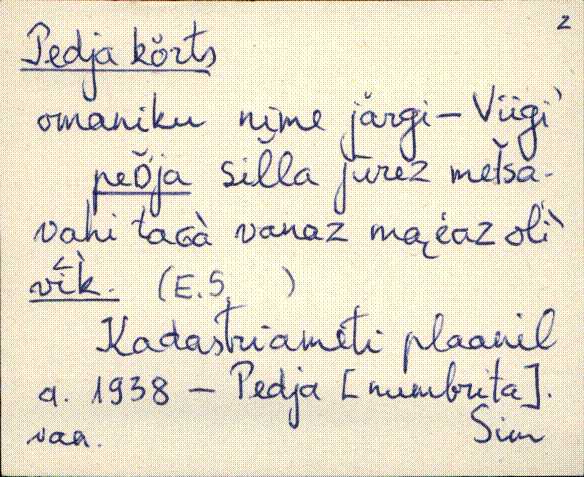 2
Pedja kõrts
omaniku nime järgi – Viigi
peDja silla jurez metsa-
vahi tacà vanaz oli
vik. (E.S. )
Kadastriameti plaanil
a. 1938 – Pedja [numbrita].
vaa. Sim